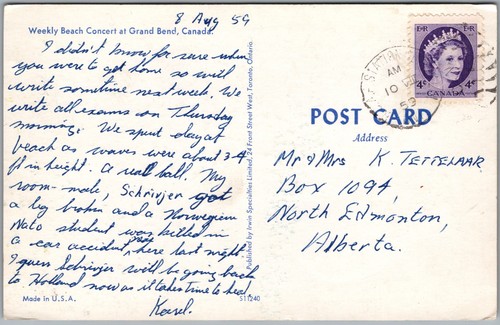 8 Aug 59
Weekly Beach Concert at Grand Bend, Canada.
I didn't know for sure when
you were to get home so will
write sometime next week. We
write all exams on Thursday
morning. We spent day at
beach as waves were about 3-4
ft in height. A real ball. My
room-mate, Schrijver got
a leg broken and a Norwegian
Nato student was killed in
a car accident, near here last night.
I guess Schrijver will be going back
to Holland now as it takes time to heal.
Karel.
Made in U.S.A.
511240
Published by Irwin Specialties Limited, 24 Front Street West, Toronto, Ontario.
AM
10
59
E R
E R
4¢
4¢
CANADA
POST CARD
Address
Mr & Mrs K. TETTELAAR
Box 1094,
North Edmonton,
Alberta.